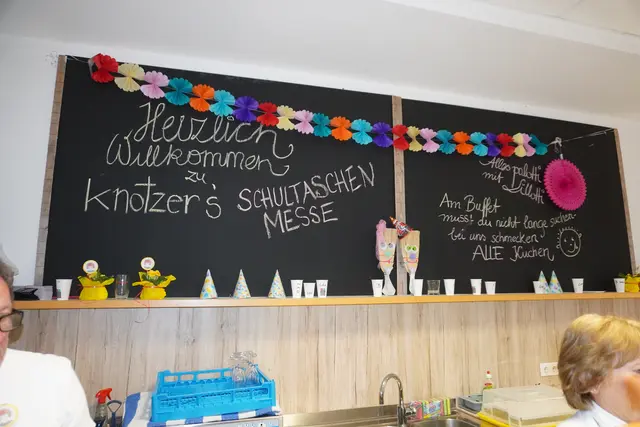 Herzlich
Willkommen
zu
Knotzer's SCHULTASCHEN
MESSE
"Alles paletti"
mit "Lillotti"
Am Buffet
musst du nicht lange suchen
bei uns schmecken
ALLE Kuchen